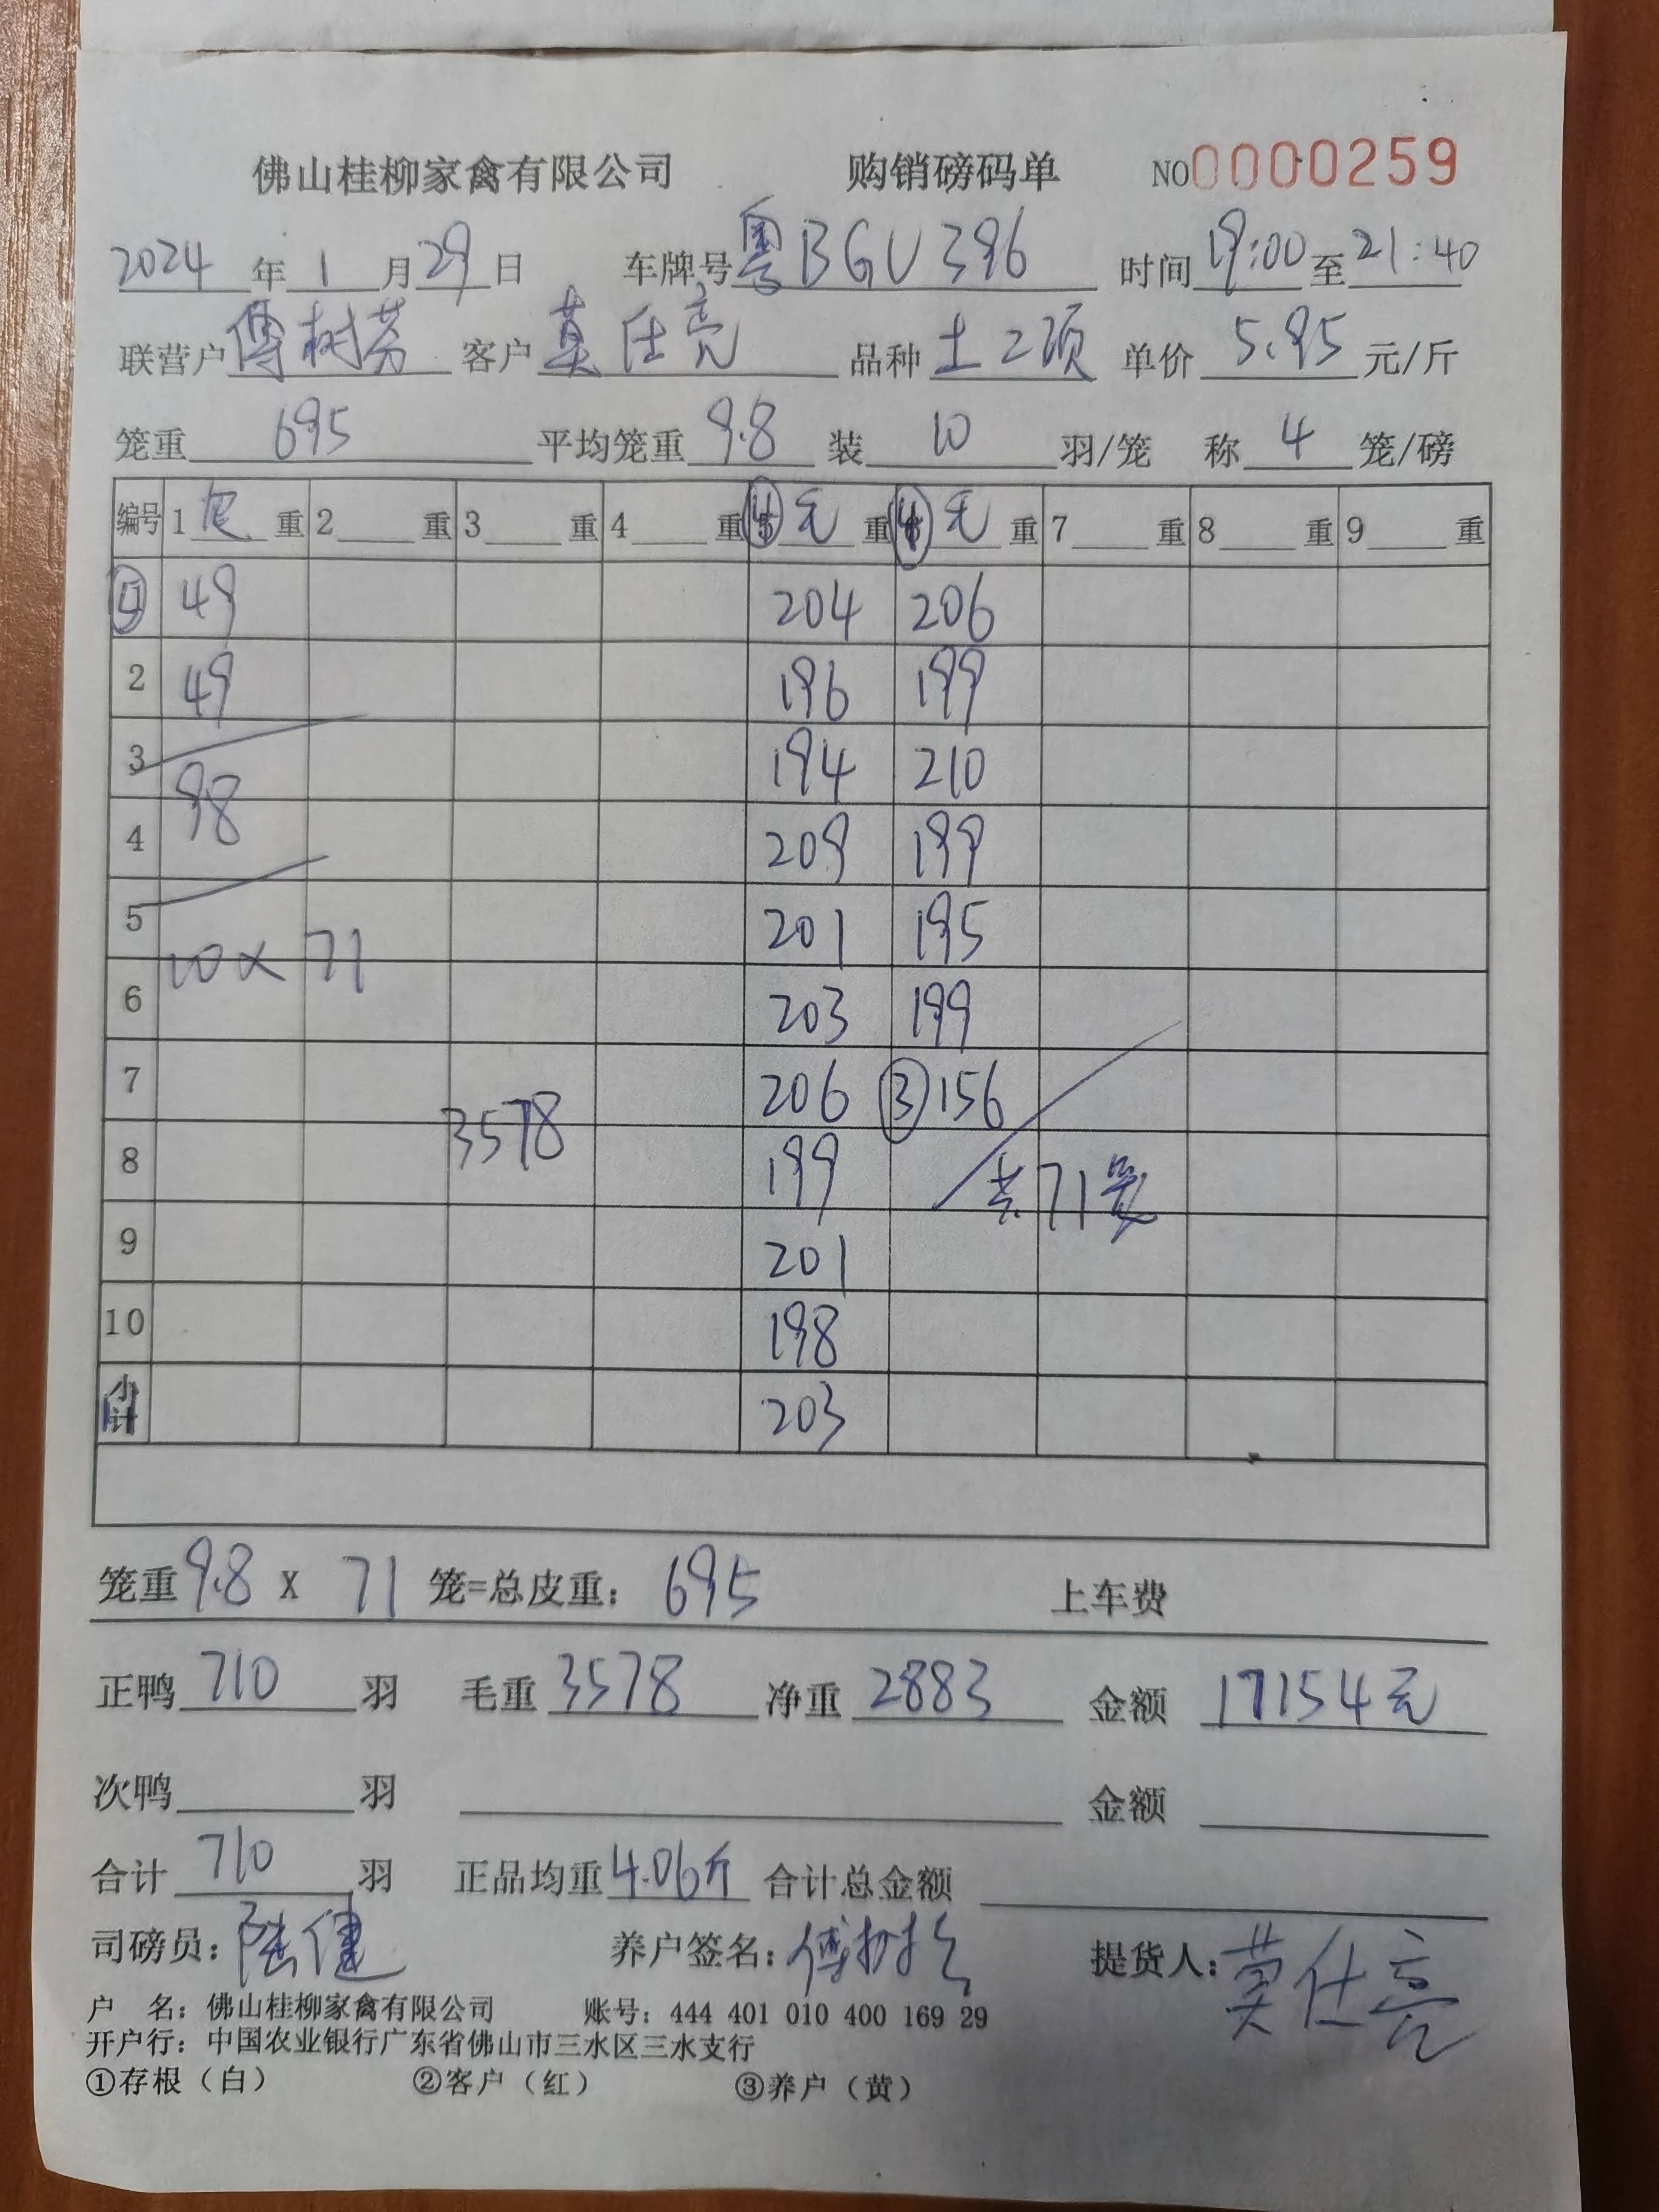 佛山桂柳家禽有限公司 购销磅码单 NO0000259
2024年1月29日 车牌号粤BGU396 时间19:00至21:40
联营户傅树芬 客户莫仕亮 品种土2项 单价5.95元/斤
笼重695 平均笼重9.8 装10羽/笼 称4笼/磅
编号 1 重 2 重 3 重 4 重 ④毛重 ④毛重 7 重 8 重 9 重
④ 49 204 206
2 49 196 199
3 194 210
4 98 209 199
5 201 195
6 10×71 203 199
7 206 ③156
8 3578 199 共71笼
9 201
10 198
小计 203
笼重9.8 X 71 笼=总皮重:695 上车费
正鸭710羽 毛重3578 净重2883 金额17154元
次鸭 羽 金额
合计710羽 正品均重4.06斤 合计总金额
司磅员:陆健 养户签名: 提货人:莫仕亮
户 名:佛山桂柳家禽有限公司 账号:444 401 010 400 169 29
开户行:中国农业银行广东省佛山市三水区三水支行
①存根(白) ②客户(红) ③养户(黄)